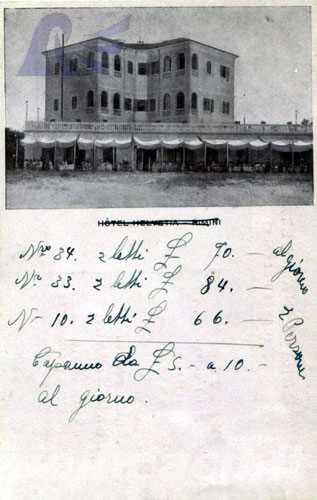 HÔTEL HELVETIA - RIMINI
Nro 34. 2 letti £ 70. — al giorno
Nro 33. 2 letti £ 84. —
N— 10. 2 letti £ 66. — 2 Persone
Capanno da £ 5. — a 10. —
al giorno.